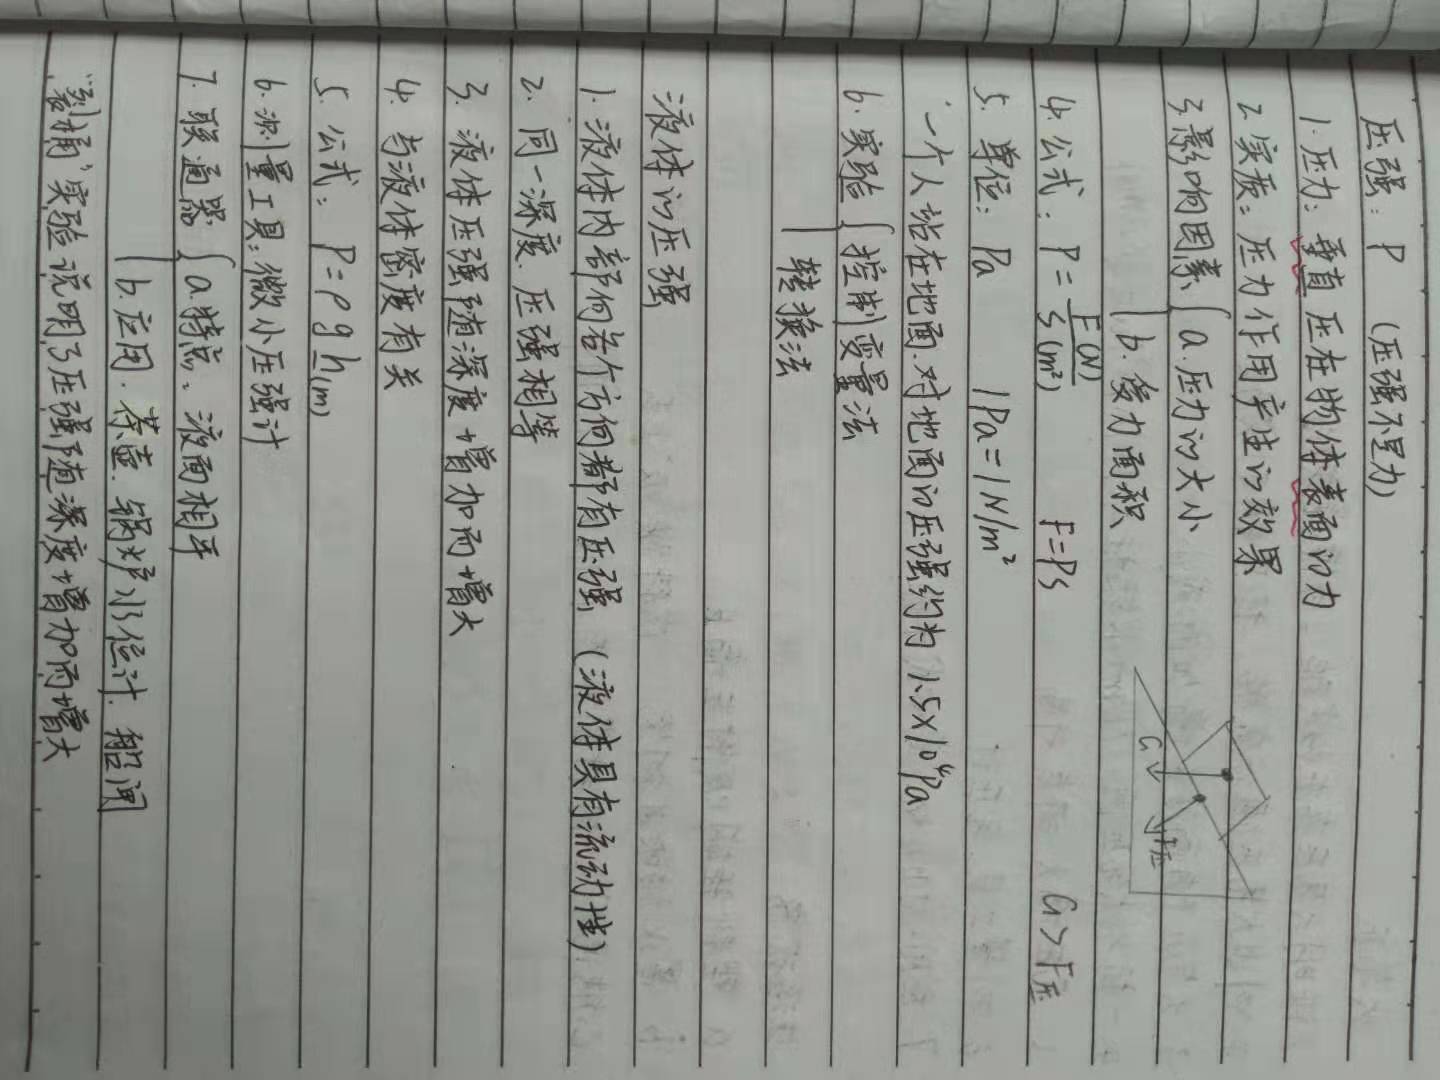 压强：P （压强不是力）
1. 压力：垂直压在物体表面的力
2. 实质：压力作用产生的效果
3. 影响因素 { a. 压力的大小
b. 受力面积
G F压
4. 公式：P = F(N) / S(m²) F=PS G>F压
5. 单位：Pa 1Pa=1N/m²
一个人站在地面.对地面的压强约为1.5×10⁴Pa
6. 实验 { 控制变量法
转换法
液体的压强
1. 液体内部向各个方向都有压强（液体具有流动性）
2. 同一深度.压强相等
3. 液体压强随深度增加而增大
4. 与液体密度有关
5. 公式：P=ρgh(m)
6. 测量工具：微小压强计
7. 联通器 { a.特点、液面相平
b. 应用. 茶壶. 锅炉水位计. 船闸
“裂桶”实验说明了压强随深度增加而增大